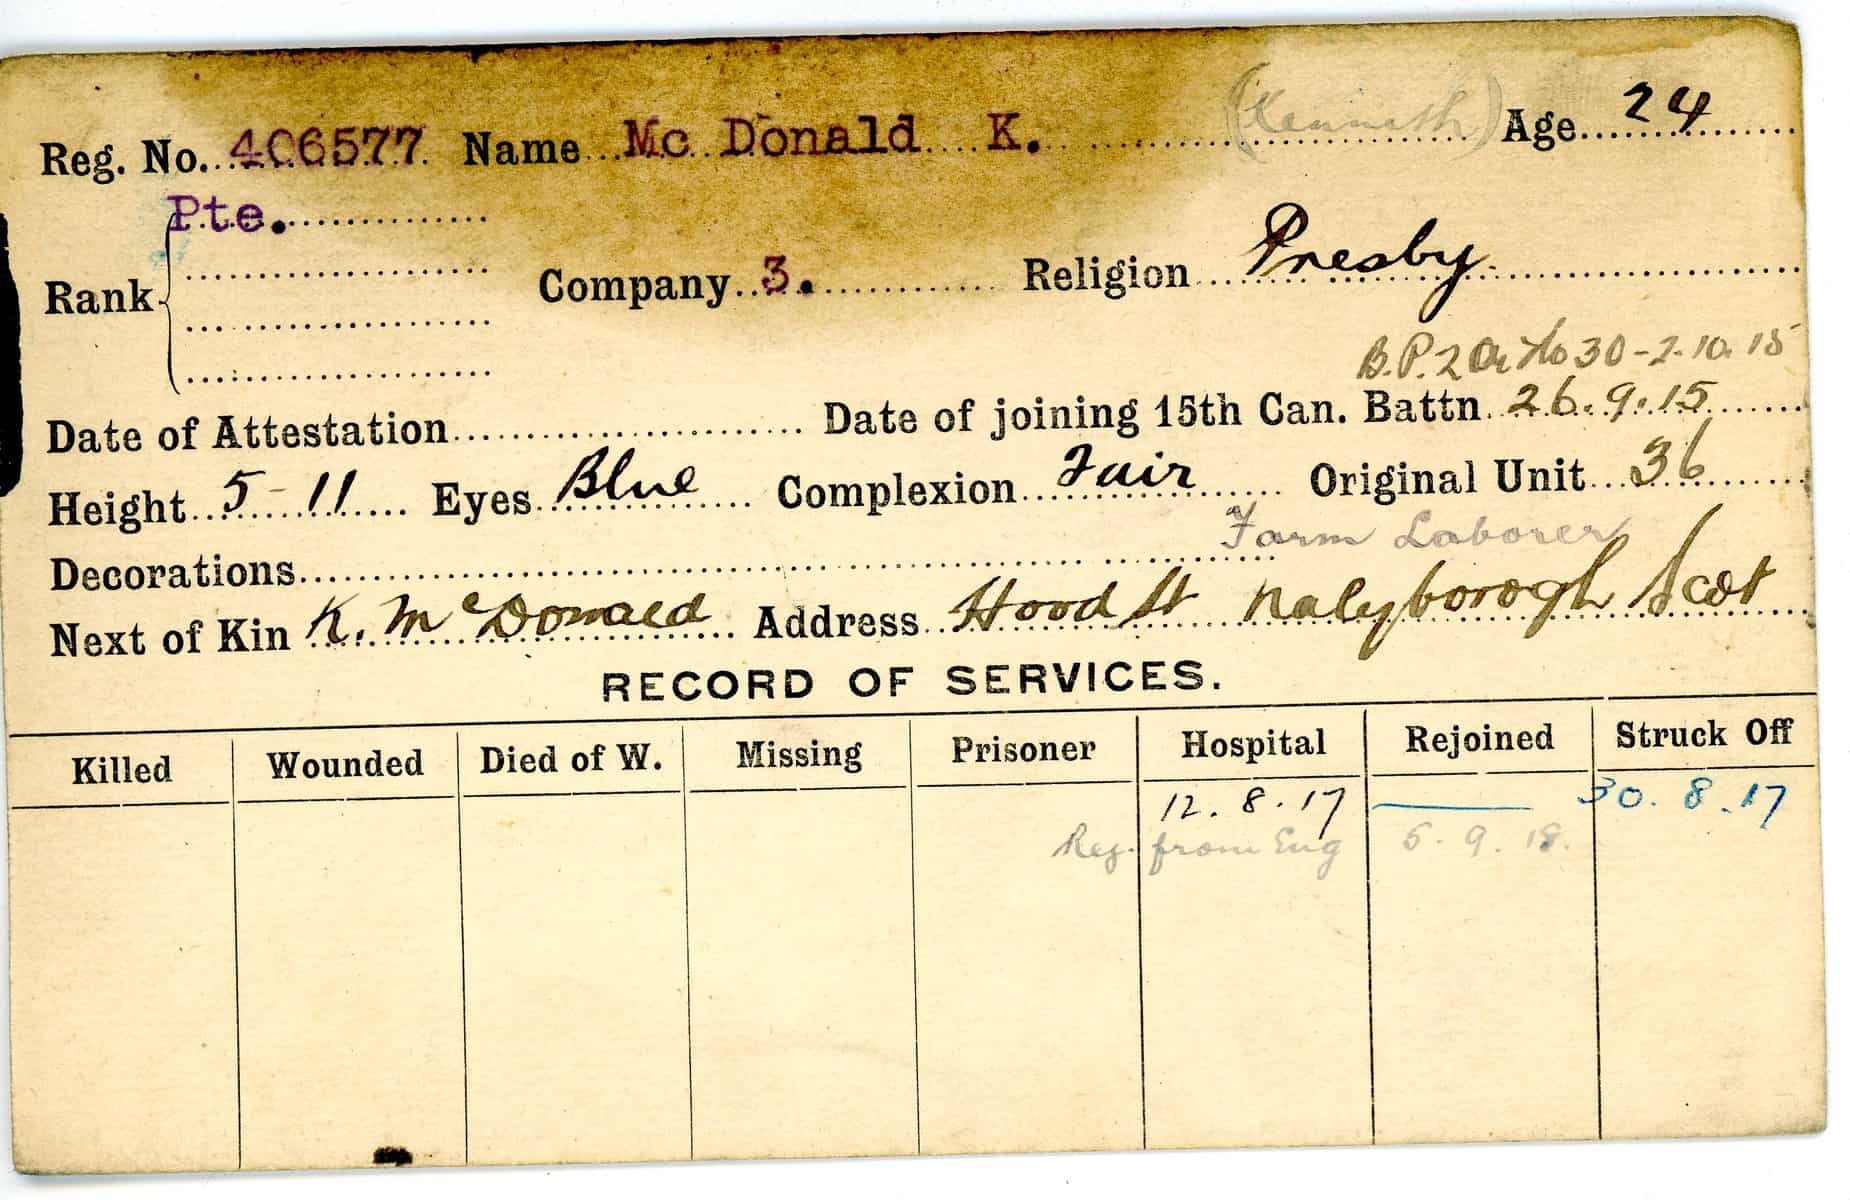 Reg. No. 406577 Name Mc Donald K. (Kenneth) Age 24
Pte.
Rank Company 3. Religion Presby
B.P. 2 30-2.10.15
Date of Attestation Date of joining 15th Can. Battn 26.9.15
Height 5-11 Eyes Blue Complexion Fair Original Unit 36
Farm Laborer
Decorations
Next of Kin K. McDonald Address Hood St Nalyborough Scot
RECORD OF SERVICES.
Killed Wounded Died of W. Missing Prisoner Hospital Rejoined Struck Off
12.8.17 — 30.8.17
from Eng 5.9.18.